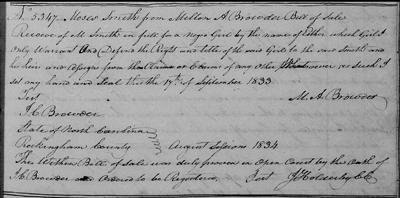 No 5347. Moses Smith from Milton A Browder Bill of Sale
Receive of M. Smith in full for a Negro Girl by the name of Esther which Girl I
only Warrant And Defend the Right and title of the said Girl to the said Smith and
his heirs and assigns from the Claim or Claims of any other Whatsoever as such I
set my hand and Seal this the 17th of September 1833
Test M. A. Browder
J. C. Browder
State of North Carolina
Rockingham County August Sessions 1834
This Within Bill of Sale was duly proven in Open Court by the Oath of
J. C. Browder and Ordered to be Registered. Test